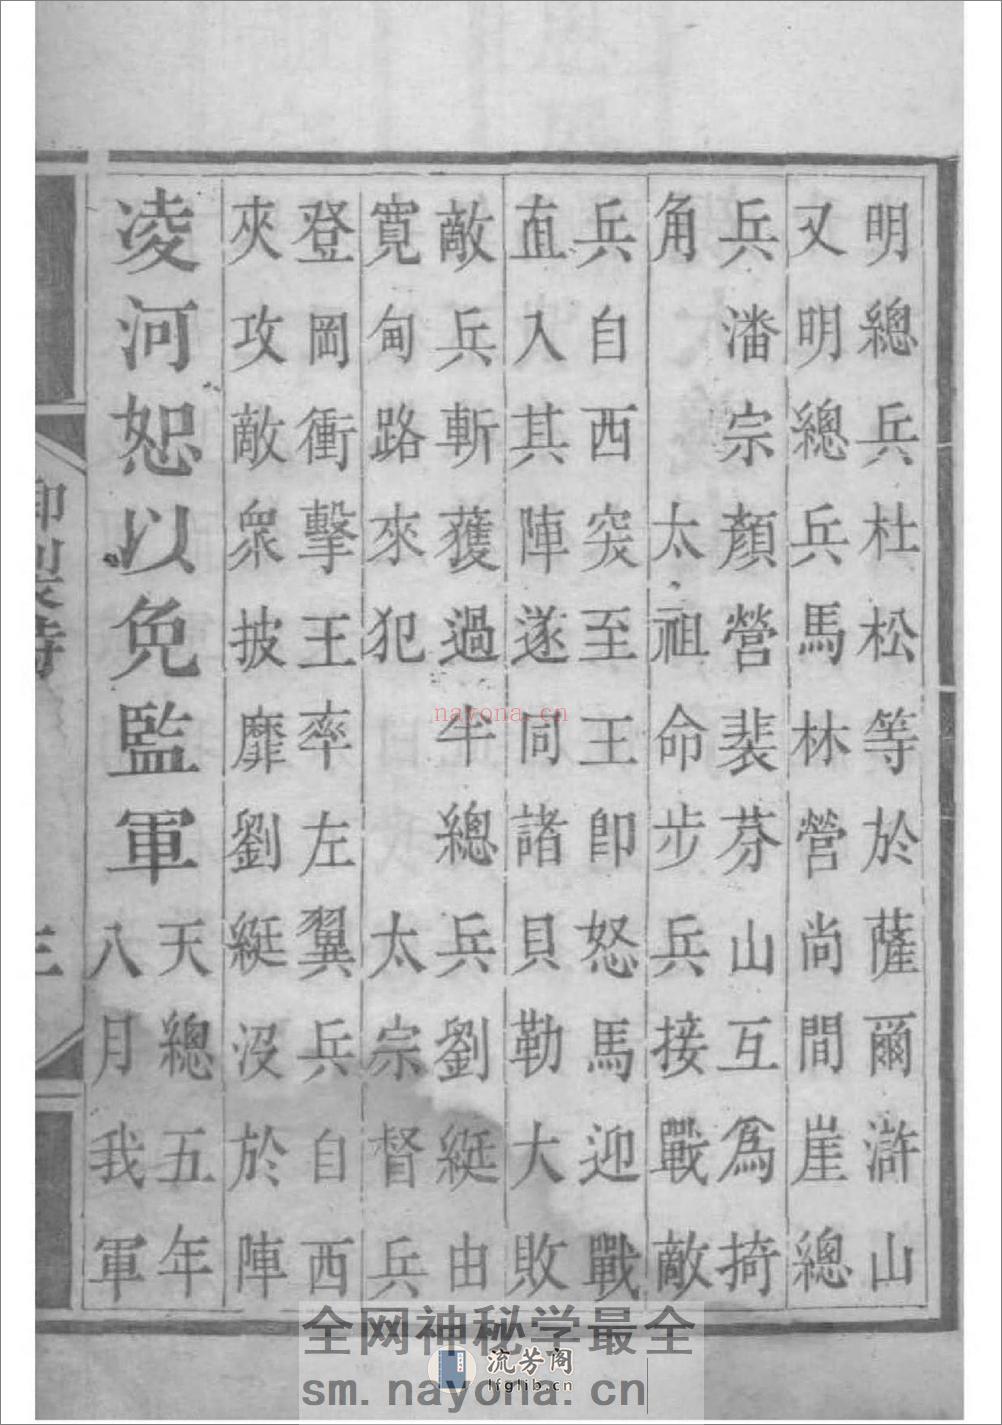 明總兵杜松等於薩爾滸山
又明總兵馬林營尚間崖總
兵潘宗顏營裴芬山互爲掎
角太祖命步兵接戰敵
兵自西突至王卽怒馬迎戰
直入其陣遂同諸貝勒大敗
敵兵斬獲過半總兵劉綎由
寬甸路來犯太宗督兵
登岡衝擊王率左翼兵自西
夾攻敵衆披靡劉綎沒於陣
凌河恕以免監軍
天總五年
八月我軍
御製詩
三
nayona.cn
全网神秘学最全
流芳阁
lfglib.cn
sm.nayona.cn